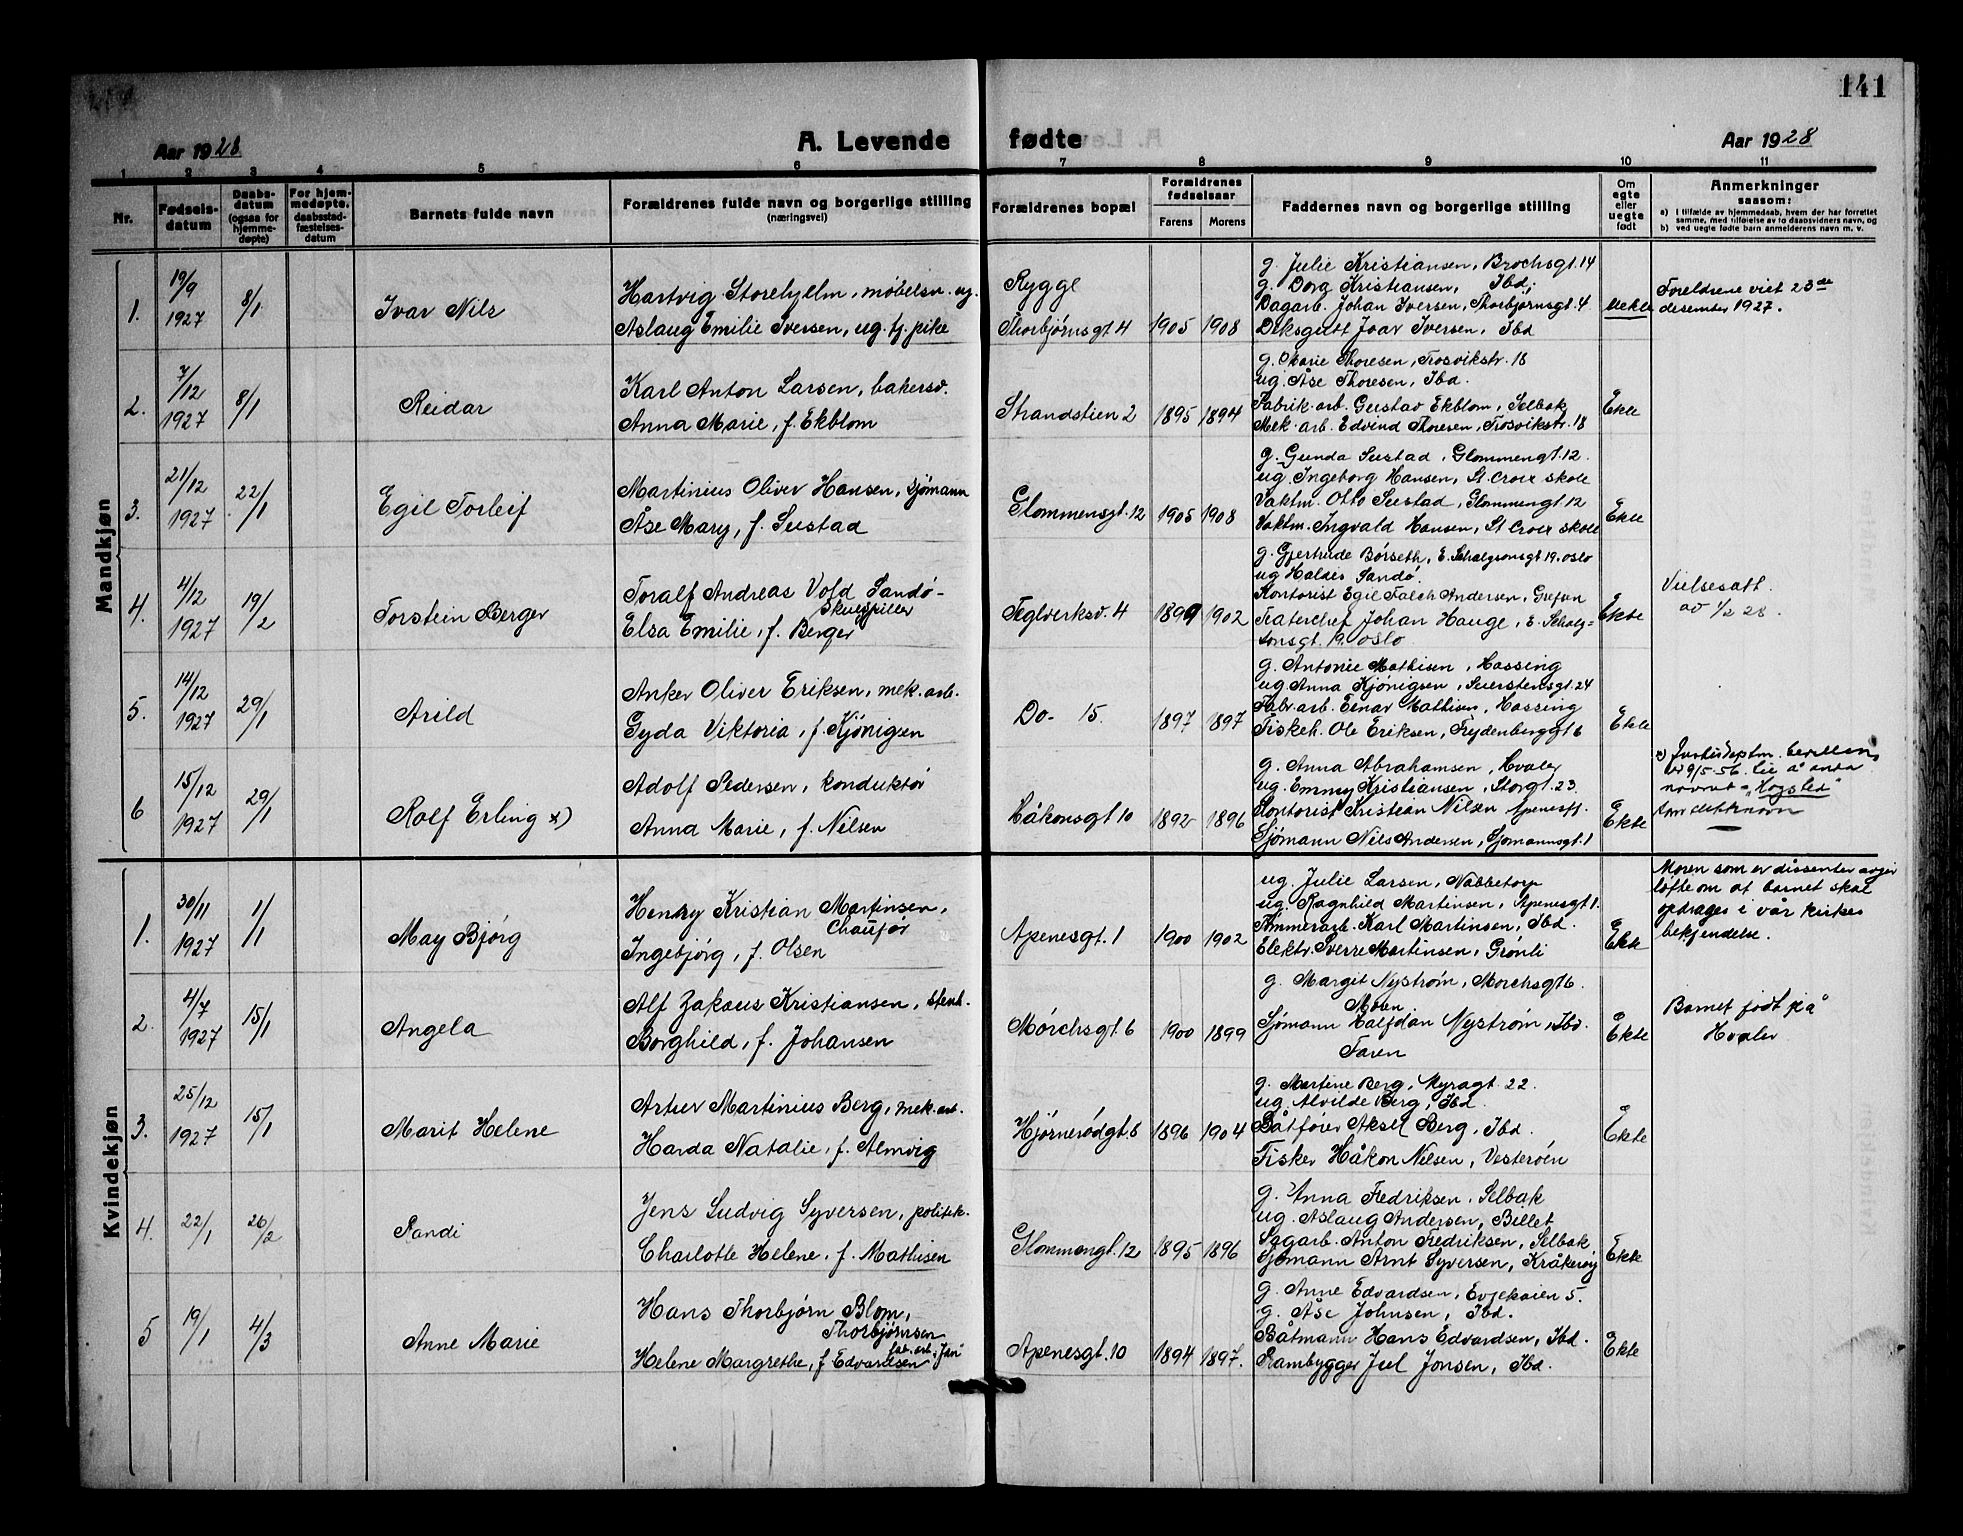 141
Aar 1928
A. Levende
fødte
Aar 1928
1 2 3 4 5 6 7 8 9 10 11
Nr.
Fødselsdatum
Daabsdatum (ogsaa for hjemmedøpte)
For hjemmedøpte. daabsstadfæstelsesdatum
Barnets fulde navn
Forældrenes fulde navn og borgerlige stilling
(næringsvei)
Forældrenes bopæl
Forældrenes fødselsaar
Farens Morens
Faddernes navn og borgerlige stilling
Om egte eller uegte født
Anmerkninger
saasom:
a) i tilfælde av hjemmedaab, hvem der har forrettet
samme, med tilføielse av to daabsvidners navn, og
b) ved uegte fødte barn anmelderens navn m. v.
Mandkjøn
1. 19/9 1927 8/1 Ivar Nils
Hartvig Storehjlm, møbelsn. ug.
Aslaug Emilie Iversen, ug. tj. pike
Rygge
Thorbjørnsgt 4 1905 1908
g. Julie Kristiansen, Brochsgt. 14
g. Dorg Kristiansen, Ibd.
Dagarb. Johan Iversen, Thorbjørnsgt. 4
Ivar Iversen, Ibd
Uekte
Foreldrene viet 23de
desember 1927.
2. 7/12 1927 8/1 Reidar
Karl Anton Larsen, bakersv.
Anna Marie, f. Ekblom
Strandstien 2 1895 1894
g. Marie Thoresen, Trosvikstr. 18
ug. Åse Thoresen, Ibd.
Fabrik. arb. Gustav Ekblom, Selbak
Mek. arb. Edvind Thoresen, Trosvikstr. 18
Ekte
3. 21/12 1927 22/1 Egil Torleif
Martinius Oliver Hansen, sjømann
Åse Mary, f. Sustad
Glommensgt. 12 1905 1908
g. Gunda Sustad, Glommengt. 12.
ug. Ingeborg Hansen, St. Croix skole
Vaktm. Otto Sustad, Glommengt. 12
Vaktm. Ingvald Hansen, St Croix skole
Ekte
4. 4/12 1927 19/2 Torstein Berger
Toralf Andreas Vold Sandø-
Skuespiller
Elsa Emilie, f. Berger
Teglverksv. 4 1899 1902
g. Gjertrude Børseth, E. Schalgsonsgt 19. Oslo
ug Haldis Sandø.
Kontorist Egil Falch Andersen, Grefsen
Teaterchef Johan Hauge, E. Schalg-
sonsgt. 19. Oslo
Ekte
Vielsesatt.
av 1/2 28.
5. 14/12 1927 29/1 Arild
Anker Oliver Eriksen, mek. arb.
Gyda Viktoria, f. Kjønigen
Do- 15. 1897 1897
g. Antonie Mathisen, Hassing
ug. Anna Kjønigsen, Suerstensgt. 24
Fabr. arb. Einar Mathisen, Hassing
Fiskeh. Ole Eriksen, Frydenberggt 6
Ekte
6 15/12 1927 29/1 Rolf Erling x)
Adolf Pedersen, konduktør
Anna Marie, f. Nilsen
Håkonsgt 10 1892 1896
g. Anna Abrahamsen, Hvaler
ug. Emmy Kristiansen, Storgt. 23.
Kontorist Kristian Nilsen Apenesgt.
Sjømann Nils Andersen, Sjømannsgt. 1
Ekte
x) Justisdeptm. bevilling
av 9/5-56. til å anta
navnet "Hogsled"
som slektsnavn
Kvindekjøn
1. 30/11 1927 1/1 May Bjørg
Henry Kristian Martinsen,
Chaufør
Ingebjørg, f. Olsen
Apenesgt. 1 1900 1902
ug. Julie Larsen, Nabbetorp
ug. Ragnhild Martinsen, Apenesgt 1.
Tømmerarb. Karl Martinsen, Ibd.
Elektr. Sverre Martinsen, Grønli
Ekte
Moren som er dissenter avgir
løfte om at barnet skal
opdrages i vår kirkes
bekjendelse.
2. 4/7 1927 15/1 Angela
Alf Zakaus Kristiansen, stenh.
Borghild, f. Johansen
Mørchsgt 6 1900 1899
g. Margit Nystrøm, Morchsgt 6.
Moren
Sjømann Halfdan Nystrøm, Ibd.
Faren
Ekte
Barnet født på
Hvaler
3. 25/12 1927 15/1 Marit Helene
Artur Martinius Berg, mek. arb.
Harda Natalie, f. Almvig
Hjørnerødgt. 8 1896 1904
g. Martine Berg, Myragt. 22.
ug. Alvilde Berg, Ibd.
Båtfører Aksel Berg, Ibd.
Fisker Håkon Nilsen, Vesterøen
Ekte
4. 22/1 26/2 Randi
Jens Ludvig Syversen, politik.
Charlotte Helene, f. Mathisen
Glommengt. 12 1895 1896
g. Anna Fredriksen, Selbak
ug. Aslaug Andersen, Billet
Sagarb. Anton Fredriksen, Selbak
Sjømann Arnt Syversen, Kråkerøy
Ekte
5 19/1 4/3 Anne Marie
Hans Thorbjørn Blom,
Thorbjørnsen
fab. arb. "Jan"
Helene Margrethe, f Edvardsen
Apenesgt. 10 1894 1897.
g. Anne Edvardsen, Evjekaien 5.
g. Åse Johnsen, Ibd.
Båtmann Hans Edvardsen, Ibd.
Rambygger Juel Jonsen, Ibd.
Ekte